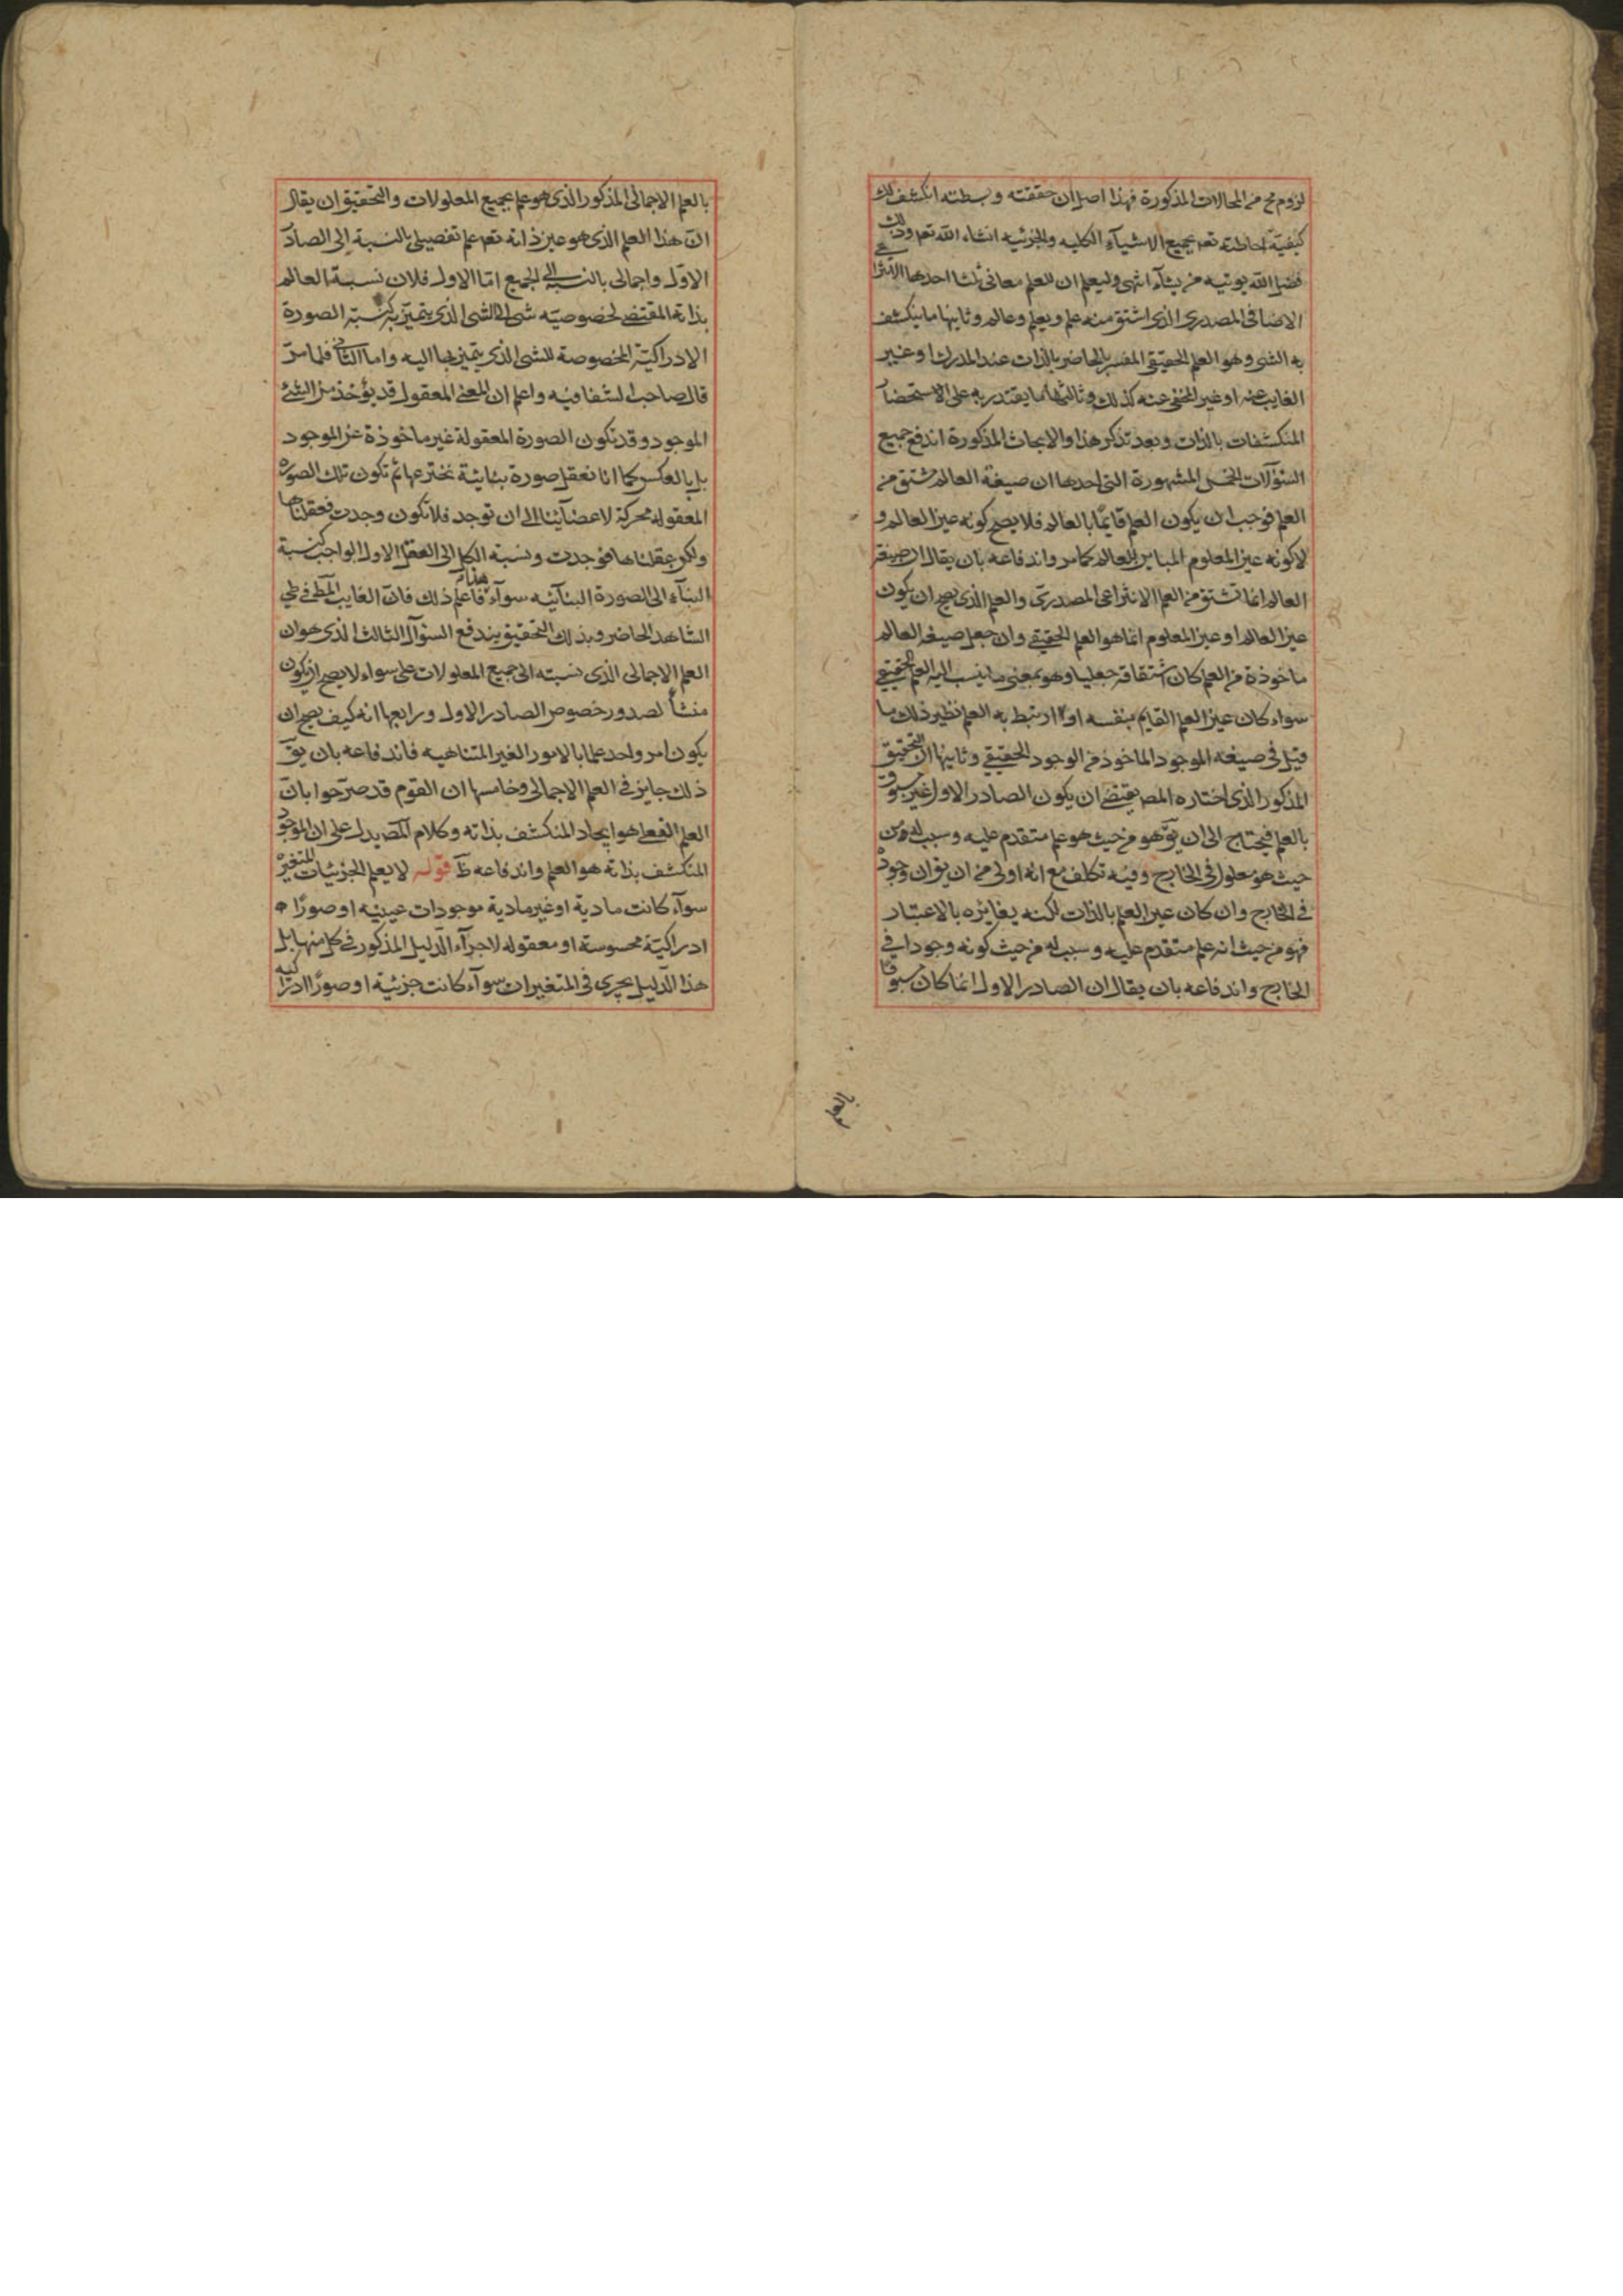 لزوم مح من المحالات المذكورة فهذا اصل ان حققته وبسطته انكشف لك
كيفية احاطته تعم بجميع الاشيآء الكليه والجزئيه انشاء الله تعم وذلك
فضل الله يوتيه من يشآء انتهى وليعلم ان للعلم معانى ثلثا احدها الانتزاعى
الاضافى المصدرى الذى اشتق منه علم ويعلم وعالم وثانيها ما ينكشف
به الشى وهو العلم الحقيقى المفسر بالحاضر بالذات عند المدرك او غير
الغايب عنه او غير المخفى عنه كذلك وثالثها ما يقتدر به على الاستحضار
المنكشفات بالذات وبعد تذكر هذا والابحاث المذكورة اندفع جميع
السئوالات الخمس المشهورة التى احدها ان صيغة العالم مشتق من
العلم فوجب ان يكون العلم قايمًا بالعالم فلا يصح كونه عين العالم و
لا كونه عين المعلوم المباين للعالم كما مر واندفاعه بان يقال ان صيغة
العالم انما تشتق من العلم الانتزاعى المصدرى والعلم الذى يصح ان يكون
عين العالم او عين المعلوم انما هو العلم الحقيقى وان جعل صيغه العالم
ماخوذة من العلم كان اشتقاقه جعليا وهو بمعنى ما ينسب اليه العلم الحقيقى
سواء كان عين العلم القايم بنفسه او ارتبط به العلم نظير ذلك ما
قيل فى صيغه الموجود الماخوذ من الوجود الحقيقى وثانيها ان التحقيق
المذكور الذى اختاره المص يقتضى ان يكون الصادر الاول غير مسبوق
بالعلم فيحتاج الى ان يق هو من حيث هو علم متقدم عليه وسبب له ومن
حيث هو معلول فى الخارج وفيه تكلف مع انه اولى من ان يق ان وجوده
فى الخارج وان كان عين العلم بالذات لكنه يغايره بالاعتبار
فهو من حيث انه علم متقدم عليه وسبب له من حيث كونه وجودا فى
الخارج واندفاعه بان يقال ان الصادر الاول انما كان مسبوقا
بالعلم
بالعلم الاجمالى المذكور الذى هو علم بجميع المعلولات والتحقيق ان يقال
ان هذا العلم الذى هو عين ذاته تعم علم تفصيلى بالنسبة الى الصادر
الاول واجمالى بالنسبه الى الجميع اما الاول فلان نسبة العالم
بذاته المقتضى لخصوصيه شى الى الشى الذى يتميز به كنسبة الصورة
الادراكية المخصوصة للشى الذى يتميز بها اليه واما الثانى فلما مر
قال صاحب الشفا فيه واعلم ان المعنى المعقول قد يؤخذ من الشئ
الموجود وقد تكون الصورة المعقولة غير ماخوذة عن الموجود
بل بالعكس كما انا نعقل صورة بنائية نخترعها ثم تكون تلك الصورة
المعقوله محركة لاعضآئنا الى ان توجد فلا تكون وجدت فعقلناها
ولكن عقلناها فوجدت ونسبة الكل الى العقل الاول الواجب كنسبة
البنآء الى الصورة البنآئيه سوآء هذا فاعلم ذلك فان الغايب المط فى طى
الشاهد الحاضر وبذلك التحقيق يندفع السئوال الثالث الذى هو ان
العلم الاجمالى الذى نسبته الى جميع المعلولات على سواء لا يصح ان يكون
منشأ لصدور خصوص الصادر الاول ورابعها انه كيف يصح ان
يكون امر واحد علما بالامور الغير المتناهيه فاندفاعه بان يق
ذلك جايز فى العلم الاجمالى وخامسها ان القوم قد صرحوا بان
العلم الفعلى هو ايجاد المنكشف بذاته وكلام المص يدل على ان الموجود
المنكشف بذاته هو العلم واندفاعه ظ قوله لا يعلم الجزئيات المتغيرة
سوآء كانت مادية او غير مادية موجودات عينيه او صورًا
ادراكية محسوسة او معقوله لاجرآء الدليل المذكور فى كل منها بل
هذا الدليل يجرى فى المتغيرات سوآء كانت جزئية او صورًا ادراكيه